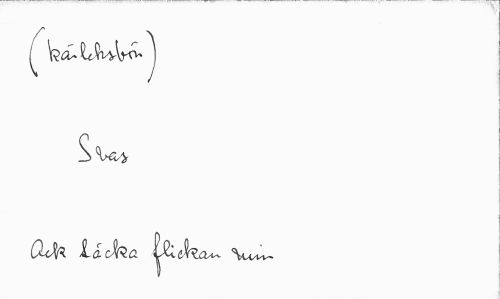 (Kärleksbön)
Svas
Ack täcka flickan min